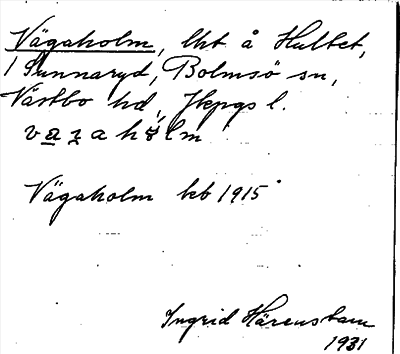 Vägaholm, lht å Hultet,
1 Sunnaryd, Bolmsö sn,
Västbo hd, Jkpgs l.
va̲ʒahɵlm
Vägaholm kb 1915
Ingrid Härenstam
1931